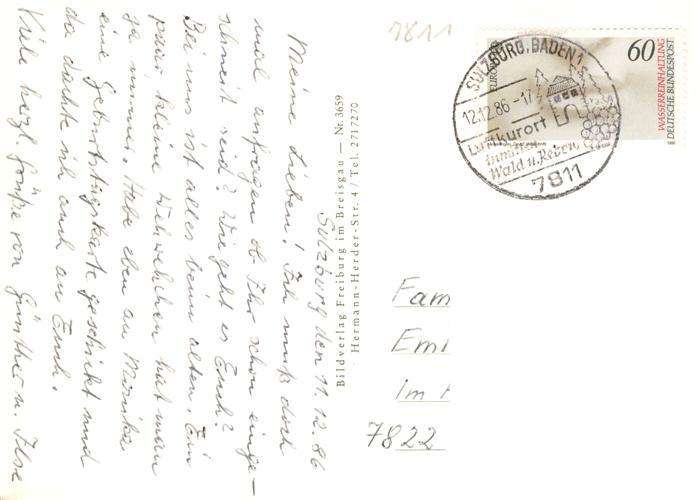 Sulzburg den 11.12.86
Meine Lieben! Ich muß doch
mal anfragen ob Ihr schon einge-
schneit seid? Wie geht es Euch?
Bei uns ist alles beim alten. Ein
paar kleine Wehwehchen hat man
ja immer. Habe eben an Monika
eine Geburtstagskarte geschickt und
da dachte ich auch an Euch.
Viele herzl. Grüße von Günther u. Ilse
Bildverlag Freiburg im Breisgau — Nr. 3659
Hermann-Herder-Str. 4 / Tel. 2717270
7811
60
WASSERREINHALTUNG
DEUTSCHE BUNDESPOST
EUROPA
SULZBURG, BADEN 1
12.12.86-17
Luftkurort
inmitten
Wald u. Reben
7811
Fam
Emi
im
7822